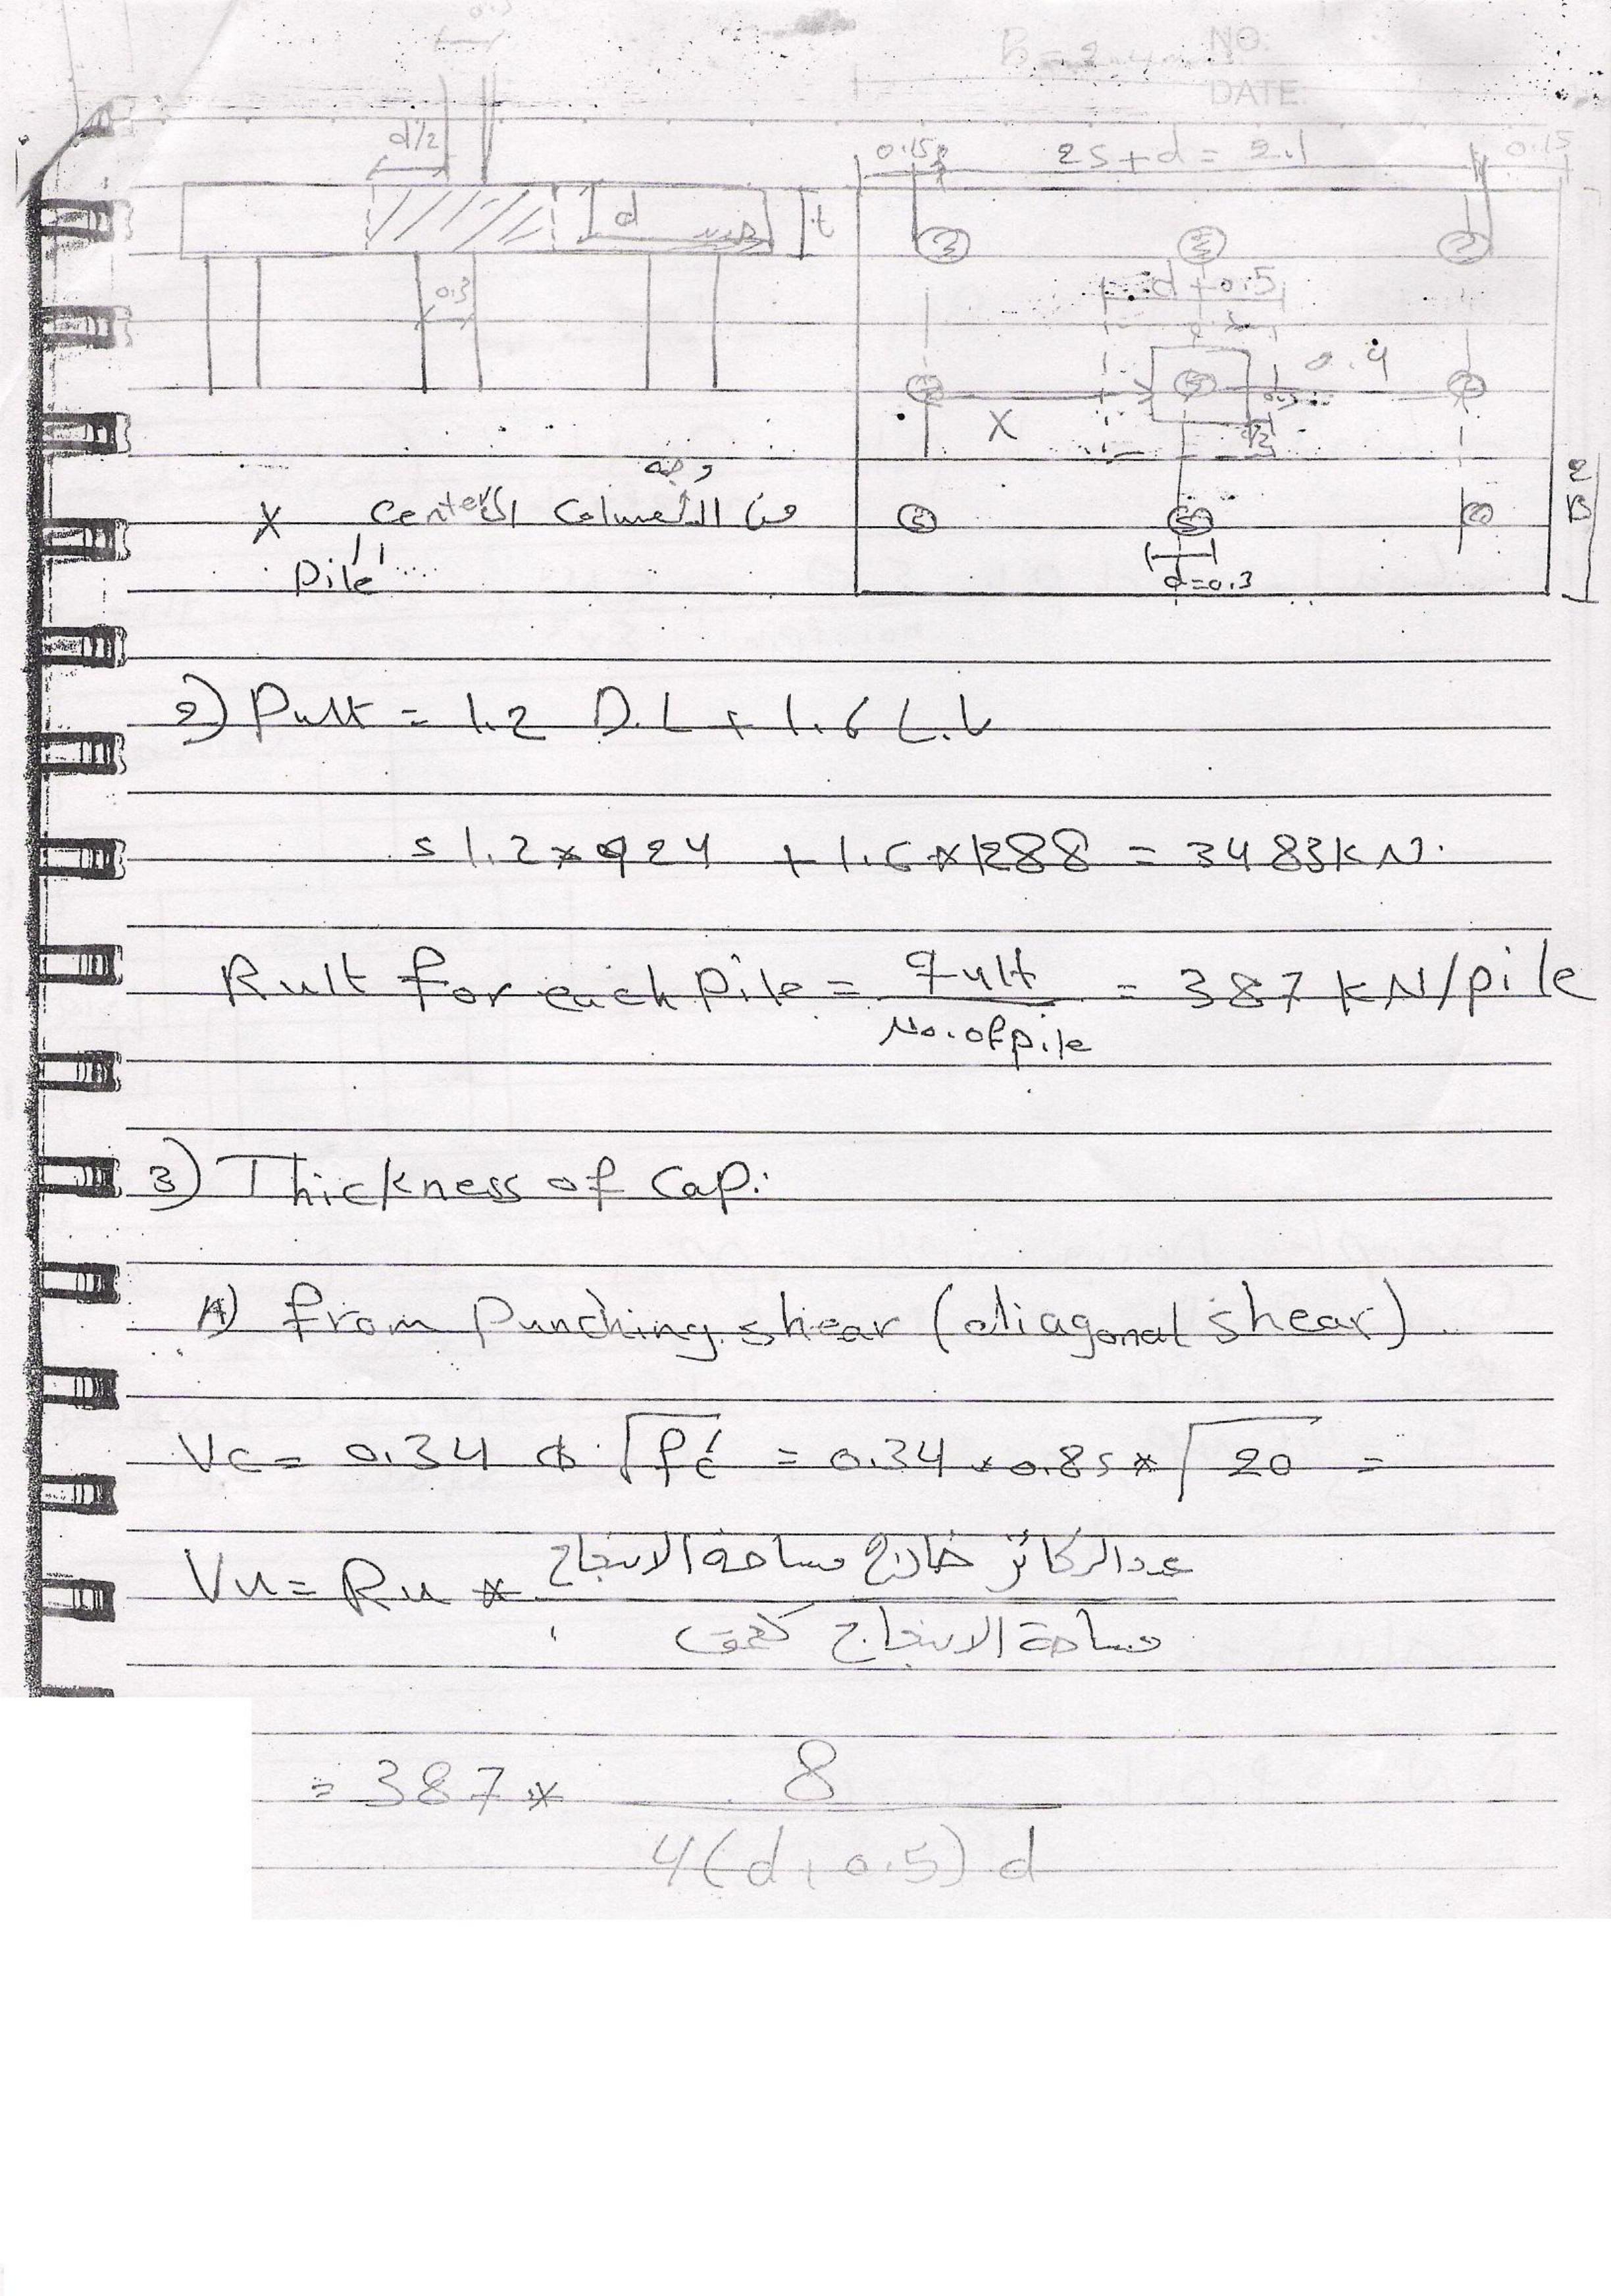 B = 2.4 m
NO:
DATE:
d/2
0.15
2s+d = 2.1
0.15
d
t
0.3
d+0.5
0.4
X
d/2
وجه
X center ال column من ال
pile ال
d=0.3
2) Pult = 1.2 D.L + 1.6 L.L
= 1.2*924 + 1.6*1288 = 3483 kN.
Rult for each Pile = qult / No. of pile = 387 kN/pile
3) Thickness of Cap:
A) from Punching shear (diagonal shear).
Vc = 0.34 Φ √fc' = 0.34 * 0.85 * √20 =
Vu = Ru * عدد الركائز خارج مساحة الانبعاج / مساحة الانبعاج كعمق
= 387 * 8 / 4(d+0.5) d